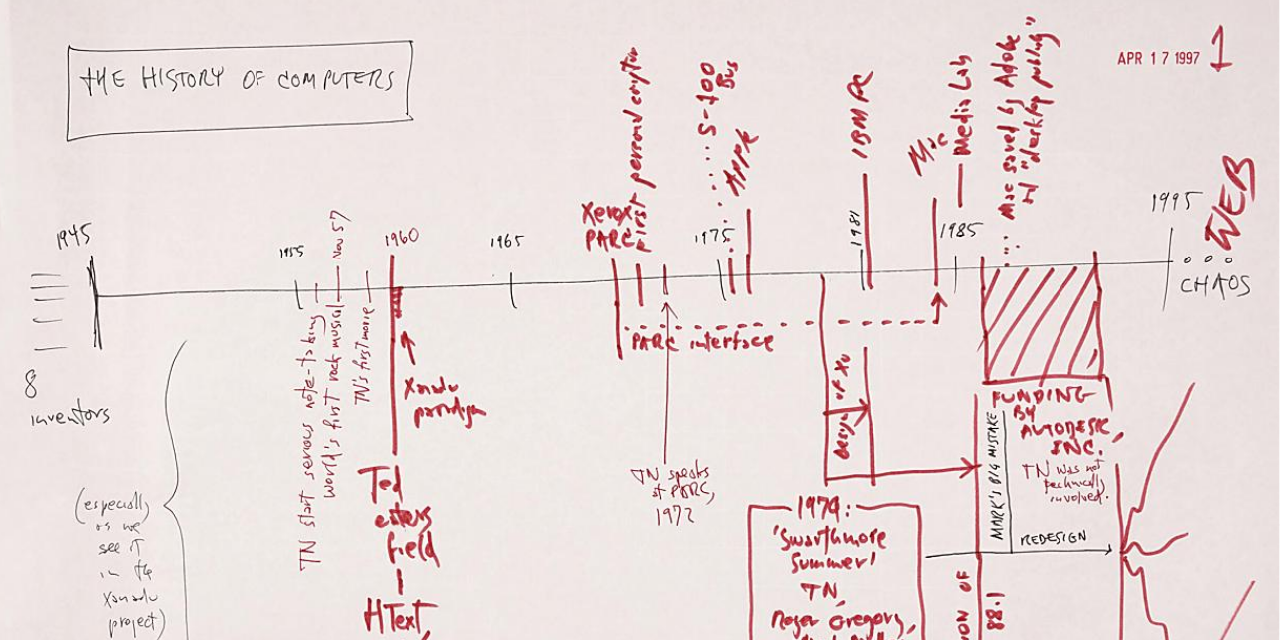 THE HISTORY OF COMPUTERS
APR 17 1997
1
1945
1955
Nov 57
1960
1965
Xerox
PARC
First personal computer
1975
S-100
Bus
Apple
1981
IBM PC
Mac
1985
Media Lab
Mac saved by Adobe
"desktop publishing"
1995
WEB
CHAOS
8
inventors
(especially
as we
see it
in the
Xanadu
project)
TN start serious note-taking
World's first rock musical
TN's first movie
Xanadu
paradigm
Ted
enters
field
HText,
PARC interface
TN speaks
at PARC,
1972
Design of XU
FUNDING
BY
AUTODESK,
INC.
TN was not
technically
involved.
MARK'S BIG MISTAKE
REDESIGN
1979:
'Swarthmore
Summer'
TN,
Roger Gregory,
ION OF
88.1